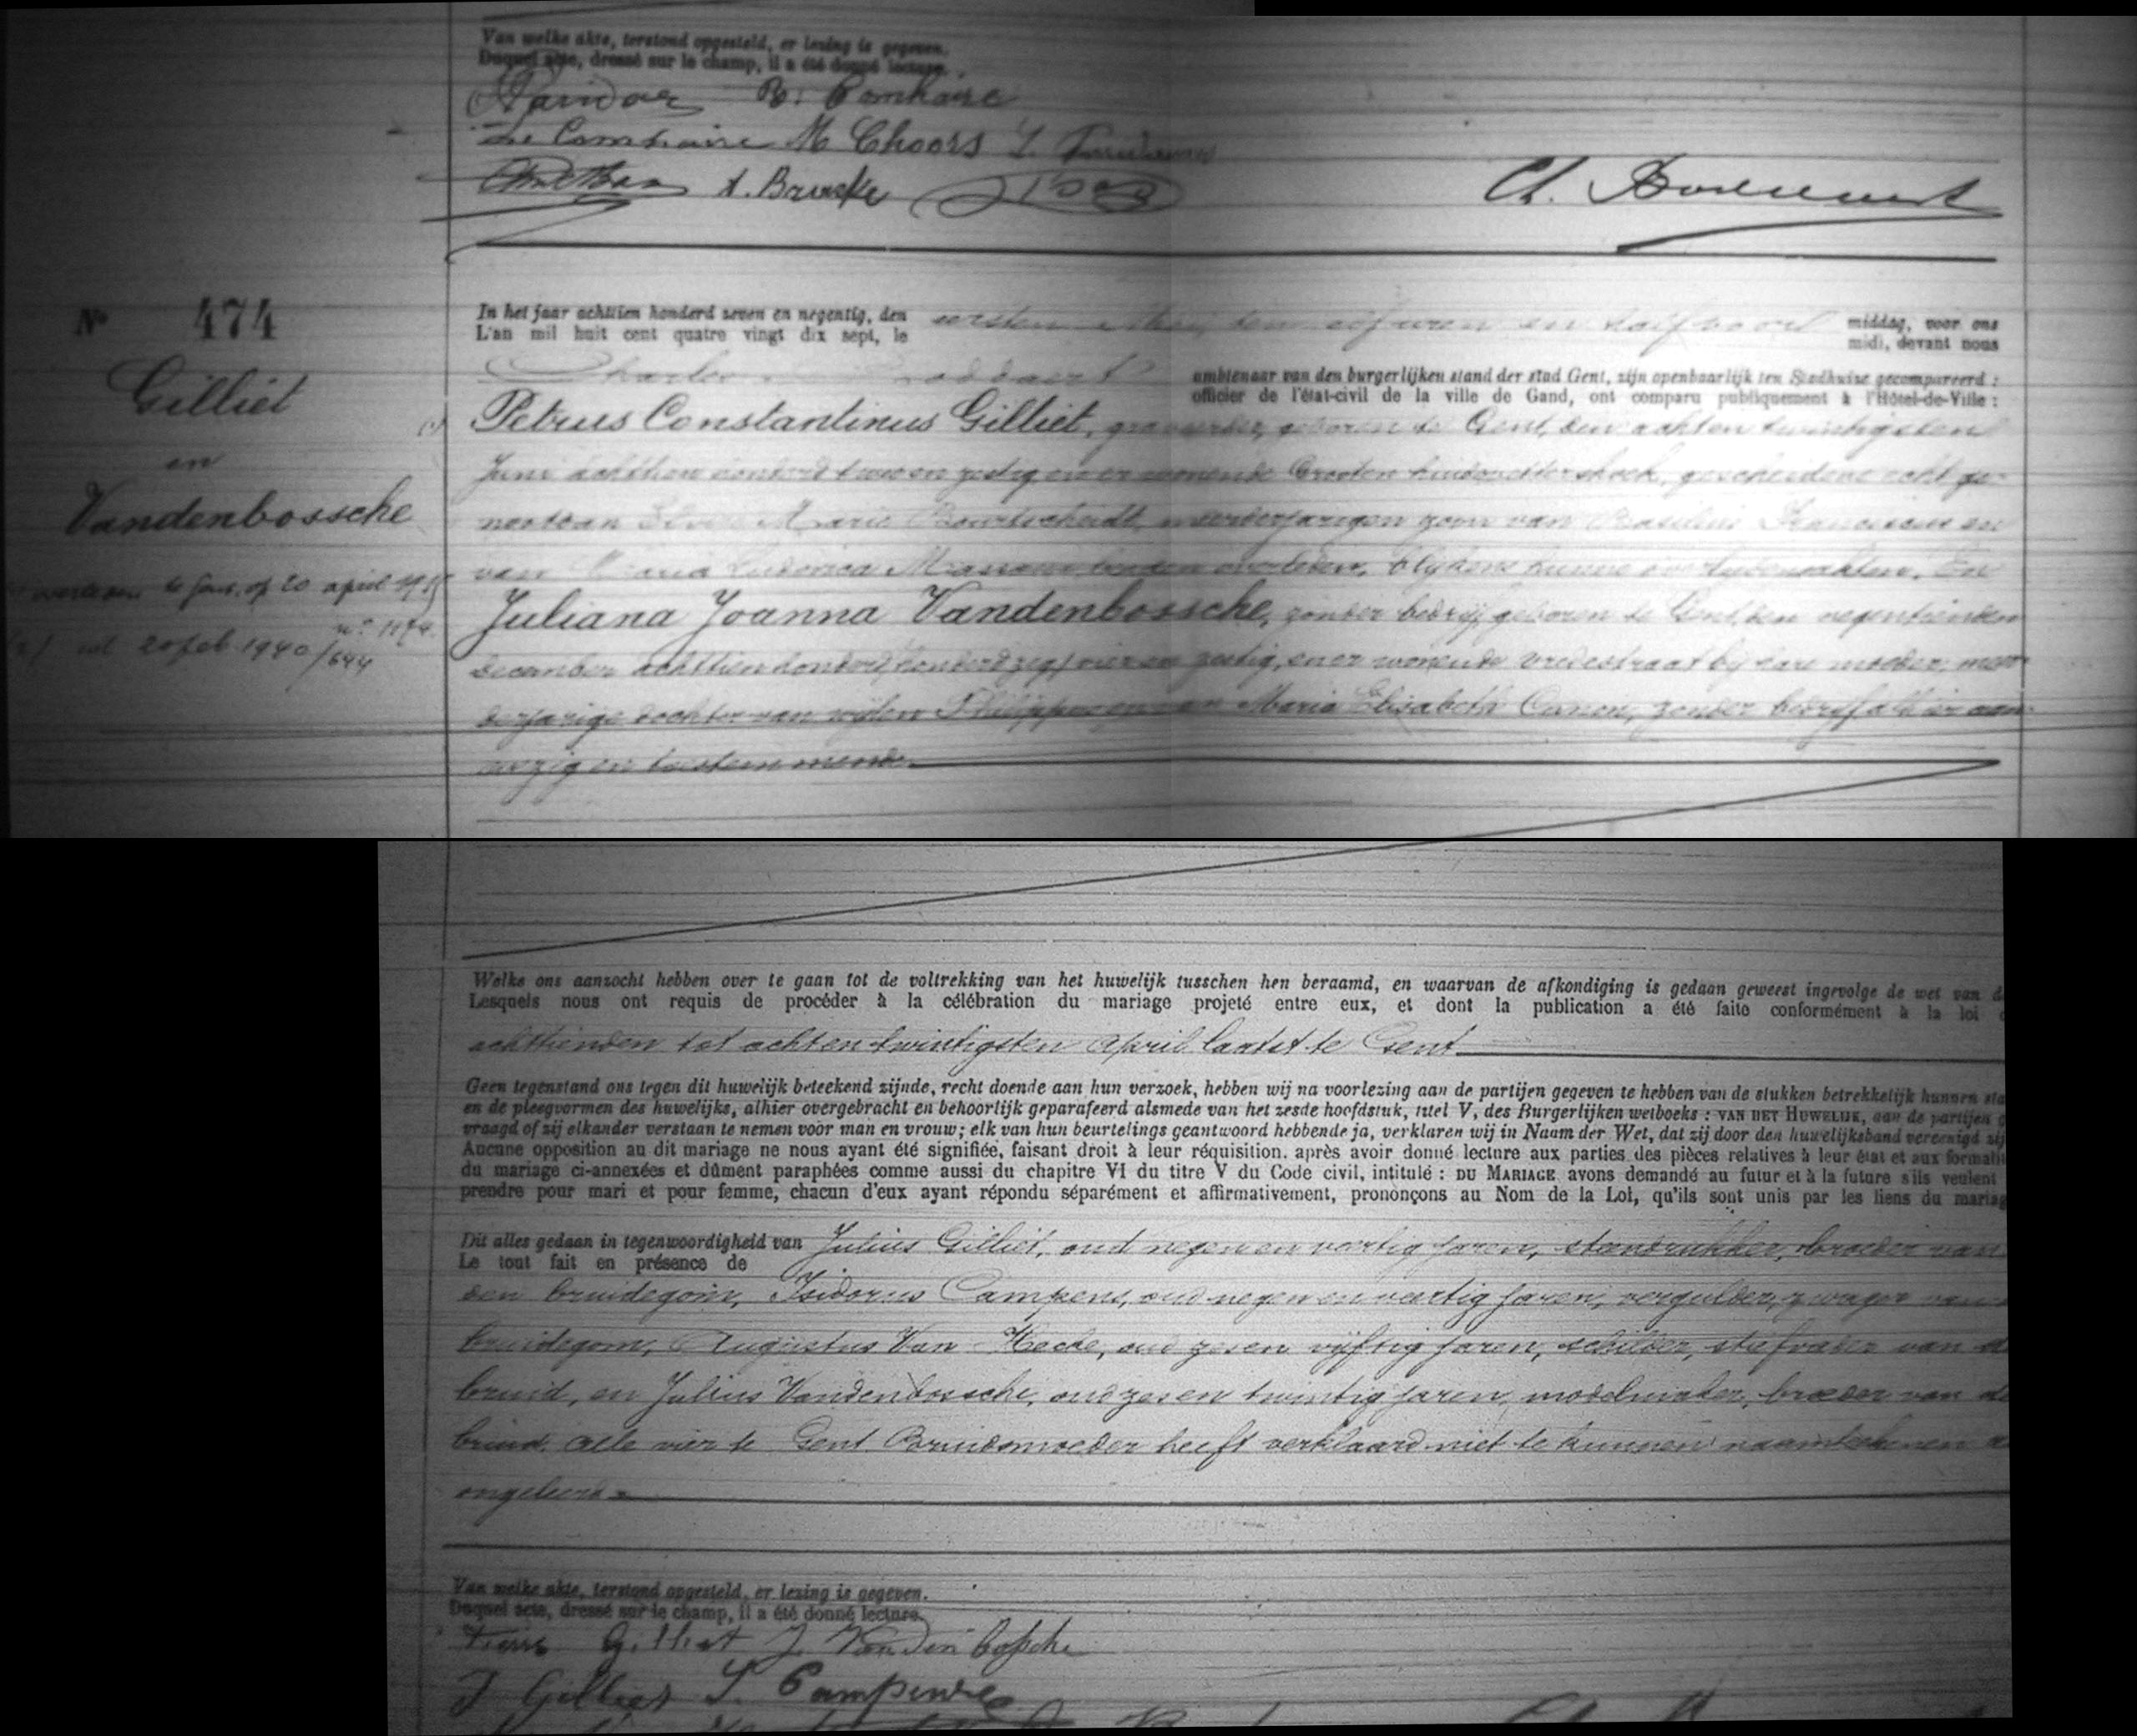 Van welke akte, terstond opgesteld, er lezing is gegeven.
Duquel acte, dressé sur le champ, il a été donné lecture.
M Choors
A. Bruske
Ch.
No 474
Gilliet
en
Vandenbossche
op 20 april
no 1174.
20 feb 1940/644
In het jaar achttien honderd zeven en negentig, den eersten elf uren en half voor middag, voor ons
L'an mil huit cent quatre vingt dix sept, le midi, devant nous
Charles ambtenaar van den burgerlijken stand der stad Gent, zijn openbaarlijk ten Stadhuize gecompareerd :
officier de l'état-civil de la ville de Gand, ont comparu publiquement à l'Hôtel-de-Ville :
Petrus Constantinus Gilliet, geboren te Gent, den achten twintigsten
Juni achttien honderd twee en zestig en er wonende Grooten huidevettershoek, gescheidene echtge-
noot van Marie meerderjarigen zoon van Basilius Franciscus en
van Maria Ludovica beiden overleden, blijkens hunne overlijdensakten. En
Juliana Joanna Vandenbossche, zonder bedrijf geboren te Gent, den negentienden
december achttien honderd vier en zestig, en er wonende vredestraat bij hare moeder, meer-
derjarige dochter van wijlen Philippus en van Maria Elisabeth Canon, zonder bedrijf alhier aan-
wezig en toestemmende
Welke ons aanzocht hebben over te gaan tot de voltrekking van het huwelijk tusschen hen beraamd, en waarvan de afkondiging is gedaan geweest ingevolge de wet van d
Lesquels nous ont requis de procéder à la célébration du mariage projeté entre eux, et dont la publication a été faite conformément à la loi
achttienden tot achten twintigsten April laatst te Gent
Geen tegenstand ons tegen dit huwelijk beteekend zijnde, recht doende aan hun verzoek, hebben wij na voorlezing aan de partijen gegeven te hebben van de stukken betrekkelijk hunnen sta
en de pleegvormen des huwelijks, alhier overgebracht en behoorlijk geparafeerd alsmede van het zesde hoofdstuk, titel V, des Burgerlijken wetboeks : VAN HET HUWELIJK, aan de partijen g
vraagd of zij elkander verstaan te nemen voor man en vrouw; elk van hun beurtelings geantwoord hebbende ja, verklaren wij in Naam der Wet, dat zij door den huwelijksband vereenigd zij
Aucune opposition au dit mariage ne nous ayant été signifiée, faisant droit à leur réquisition. après avoir donné lecture aux parties des pièces relatives à leur état et aux formalit
du mariage ci-annexées et dûment paraphées comme aussi du chapitre VI du titre V du Code civil, intitulé : DU MARIAGE avons demandé au futur et à la future s'ils veulent
prendre pour mari et pour femme, chacun d'eux ayant répondu séparément et affirmativement, prononçons au Nom de la Loi, qu'ils sont unis par les liens du mariag
Dit alles gedaan in tegenwoordigheid van Julius Gilliet, oud negen en veertig jaren, steendrukker, broeder van
Le tout fait en présence de
den bruidegom, Isidorus Campens, oud negen en veertig jaren, vergulder, zwager van
bruidegom, Augustus Van Hecke, oud zes en vijftig jaren, schilder, stiefvader van de
bruid, en Julius Vandenbossche, oud zes en twintig jaren, modelmaker, broeder van de
bruid, alle vier te Gent. Bruidsmoeder heeft verklaard niet te kunnen naamteekenen a
ongeleerd
Van welke akte, terstond opgesteld, er lezing is gegeven.
Duquel acte, dressé sur le champ, il a été donné lecture.
Pierre Gilliet J Vandenbossche
J Gilliet I. Campens